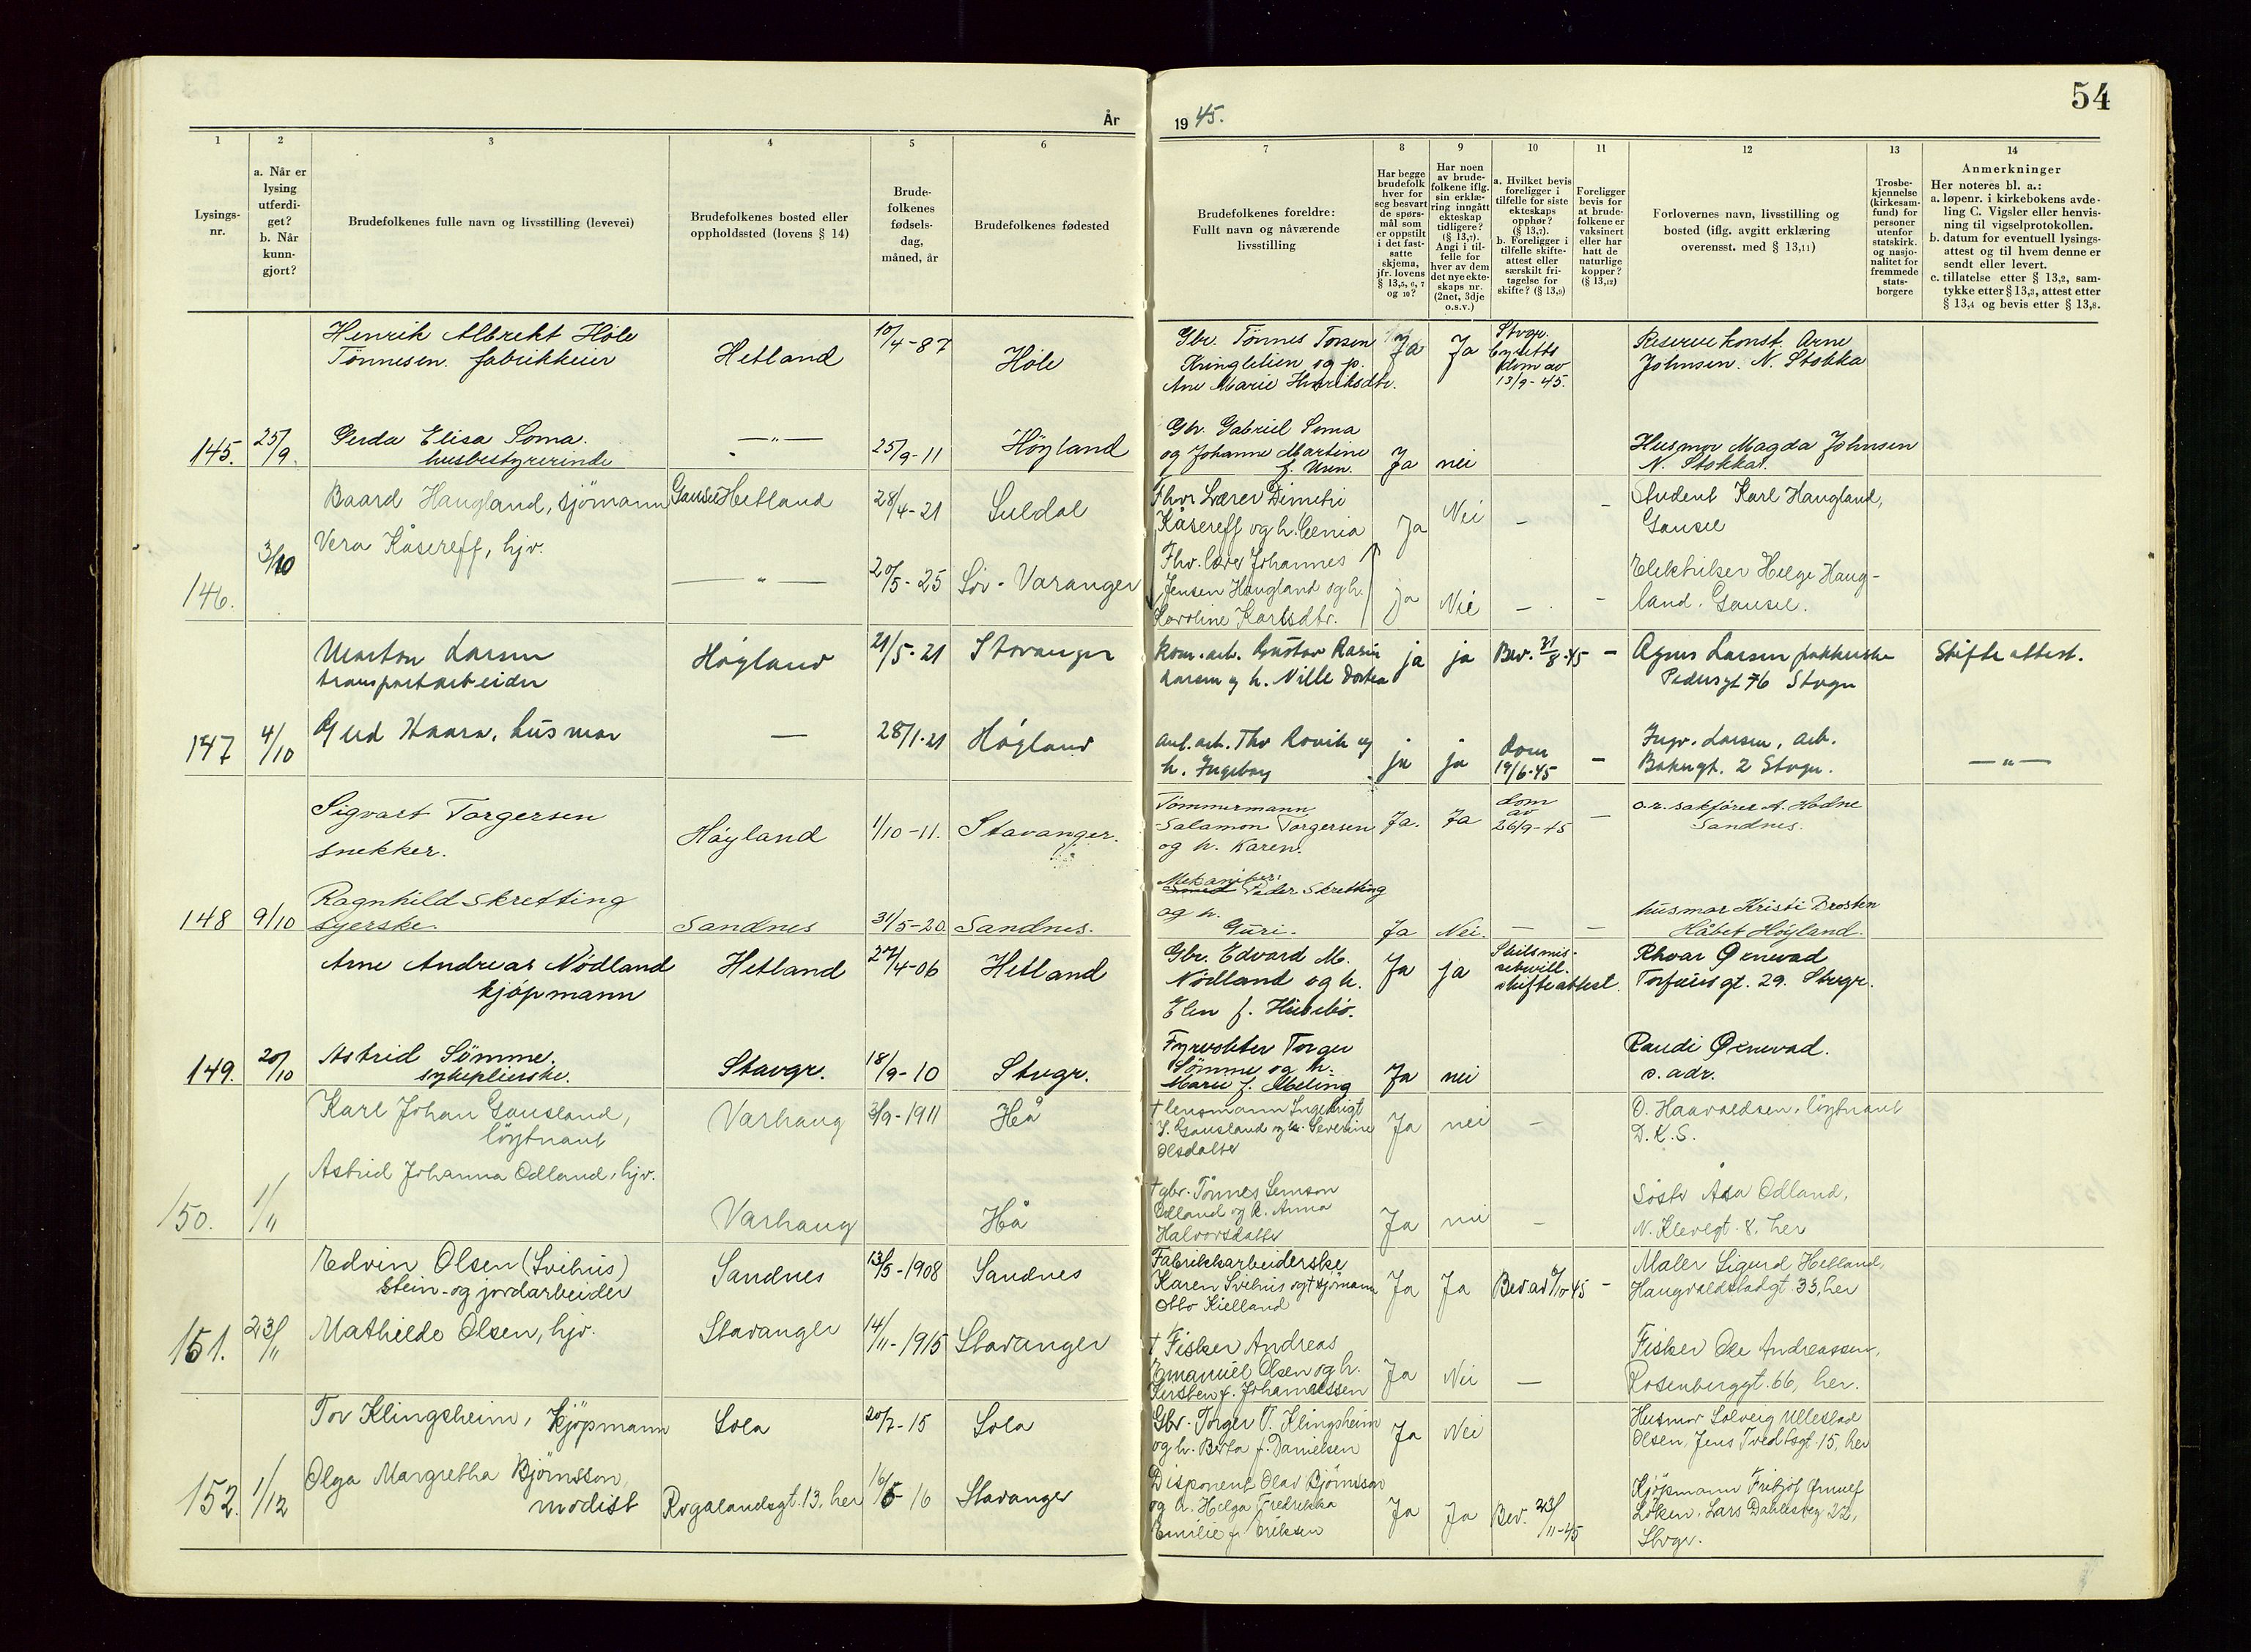 54
År
19 45.
1
2
3
4
5
6
7
8
9
10
11
12
13
14
Lysings-
nr.
a. Når er
lysing
utferdi-
get?
b. Når
kunn-
gjort?
Brudefolkenes fulle navn og livsstilling (levevei)
Brudefolkenes bosted eller
oppholdssted (lovens § 14)
Brude-
folkenes
fødsels-
dag,
måned, år
Brudefolkenes fødested
Brudefolkenes foreldre:
Fullt navn og nåværende
livsstilling
Har begge
brudefolk
hver for
seg besvart
de spørs-
mål som
er oppstilt
i det fast-
satte
skjema,
jfr. lovens
§ 13,5, 6, 7
og 10?
Har noen
av brude-
folkene iflg.
sin erklæ-
ring inngått
ekteskap
tidligere?
(§ 13,7).
Angi i til-
felle for
hver av dem
det nye ekte-
skaps nr.
(2net, 3dje
o.s.v.)
a. Hvilket bevis
foreligger i
tilfelle for siste
ekteskaps
opphør?
(§ 13,7).
b. Foreligger i
tilfelle skifte-
attest eller
særskilt fri-
tagelse for
skifte? (§ 13,9)
Foreligger
bevis for
at brude-
folkene er
vaksinert
eller har
hatt de
naturlige
kopper?
(§ 13,12)
Forlovernes navn, livsstilling og
bosted (iflg. avgitt erklæring
overensst. med § 13,11)
Trosbe-
kjennelse
(kirkesam-
fund) for
personer
utenfor
statskirk.
og nasjo-
nalitet for
fremmede
stats-
borgere
Anmerkninger
Her noteres bl. a.:
a. løpenr. i kirkebokens avde-
ling C. Vigsler eller henvis-
ning til vigselprotokollen.
b. datum for eventuell lysings-
attest og til hvem denne er
sendt eller levert.
c. tillatelse etter § 13,2, sam-
tykke etter § 13,3, attest etter
§ 13,4 og bevis etter § 13,8.
Henrik Albrekt Höle
Tönnesen. fabrikkeier
Hetland
10/4-87
Höle
Gbr. Tönnes Torsen
Kringlelien og
Ane Marie Henriksdtr.
Ja
Ja
Stvgr.
byretts
dom av
13/9-45.
Reservekonst. Arne
Johnsen. N. Stokka
145.
25/9.
Gerda Elisa Soma.
husbestyrerinde
—"—
25/9-11
Höyland
Gbr. Gabriel Soma
og Johanne Martine
Ja
nei
Husmor Magda Johnsen
N. Stokka.
Baard Haugland, sjömann
Gausel Hetland
28/4-21
Suldal
Fhv. Lærer Dimitri
Kåsereff og h. Cenia
Ja
Nei
–
–
Student Karl Haugland,
Gausel
146.
3/10
Vera Kåsereff, hjv.
—"—
20/5-25
Sör-Varanger
Fhv. lærer Johannes
Jensen Haugland og h.
Karoline Karlsdtr.
Ja
Nei
–
–
Elektriker Helge Haug-
land. Gausel.
Marton Larsen
transportarbeider
Höyland
21/5-21
Stavanger
Kom. arb. Gustav
Larsen og h. Nille Dortea
ja
ja
Bev. 21/8-45
–
Agnes Larsen
Pedersgt 76 Stvgr
Skifte attest.
147
4/10
Gud Haara, husmor
—
28/1-21
Höyland
anl. arb. Thv Rovik og
h. Ingeborg
ja
ja
Dom
19/6-45
–
Ingv. Larsen, arb.
Bakergt. 2 Stvgr.
—"—
Sigvart Torgersen
snekker.
Höyland
1/10-11.
Stavanger.
Tömmermann
Salamon Torgersen
og h. Karen.
Ja.
Ja
dom
av
26/9-45
–
o.r. sakförer A. Hodne
Sandnes.
148
9/10
Ragnhild Skretting
syerske.
Sandnes
31/5-20
Sandnes.
Mekaniker
Smed Peder Skretting
og h.
Guri.
Ja
Nei.
–
–
husmor Kristi Brosten
Håbet Höyland.
Arne Andreas Nödland
kjöpmann
Hetland
27/4-06
Hetland
Gbr. Edvard M.
Nödland og h.
Elen f. Husebö.
Ja
ja
Skilsmis-
sebevill.
skifteattest.
Rhoar Öxnevad
Torfæusgt. 29. Stvgr.
149.
20/10
Astrid Sömme.
sykepleierske.
Stavgr.
18/9-10
Stvgr.
Fyrvokter Torger
Sömme og h.
Marie f. Meling
Ja
nei
Randi Öxnevad.
s. adr.
Karl Johan Gausland,
löytnant
Varhaug
3/9-1911
Hå
† lensmann Ingebrigt
S. Gausland og h. Severine
Olsdatter
Ja
nei
–
O. Haavaldsen, löytnant
D.K.S.
150.
1/11
Astrid Johanna Odland, hjv.
Varhaug
Hå
† gbr. Tönnes Semson
Odland og h. Anna
Halvorsdatter
Ja
nei
–
Söster Åsa Odland,
N. Klevegt. 8. her
Edvin Olsen (Svihus)
stein- og jordarbeider
Sandnes
13/5-1908
Sandnes
Fabrikkarbeiderske
Karen Svihus og † sjömann
Otto Kielland
Ja
Ja
–
Maler Sigurd Helland,
Haugvaldstadgt. 33, her
151.
23/11
Mathilde Olsen, hjv.
Stavanger
14/11-1915
Stavanger
† Fisker Andreas
Emanuel Olsen og h.
Kirsten f. Johannessen
Ja
Nei
—
Fisker Ole Andreassen,
Rosenberggt. 66, her.
Tor Klingsheim, kjöpmann
Sola
20/7-15
Sola
Gbr. Torger T. Klingsheim
og h. Berta f. Danielsen
Ja
Nei
Husmor Solveig Ullestad
Olsen, Jens Tvedtsgt. 15, her
152.
1/12
Olga Margretha Björnsson,
modist
Rogalandsgt. 13. her
16/5-16
Stavanger
Disponent Olav Björnsson
og h. Helga Fredrikka
Emilie f. Eriksen
Ja
Ja
Bev. 23/11-45
Kjöpmann Fritjof Ørnulf
Löken, Lars Dahlesvg. 22,
Stvgr.